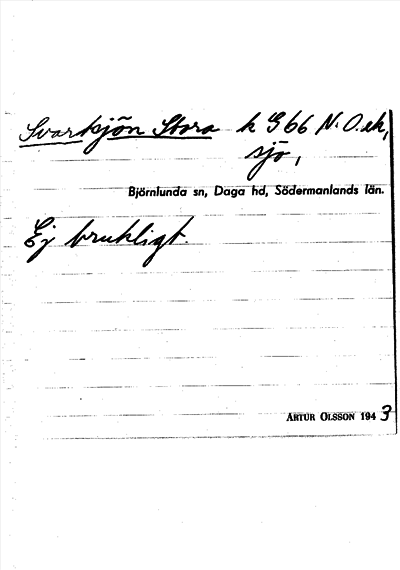 Svartsjön Stora k G66 N.O.ek,
sjö,
Björnlunda sn, Daga hd, Södermanlands län.
Ej brukligt.
ARTUR OLSSON 1943